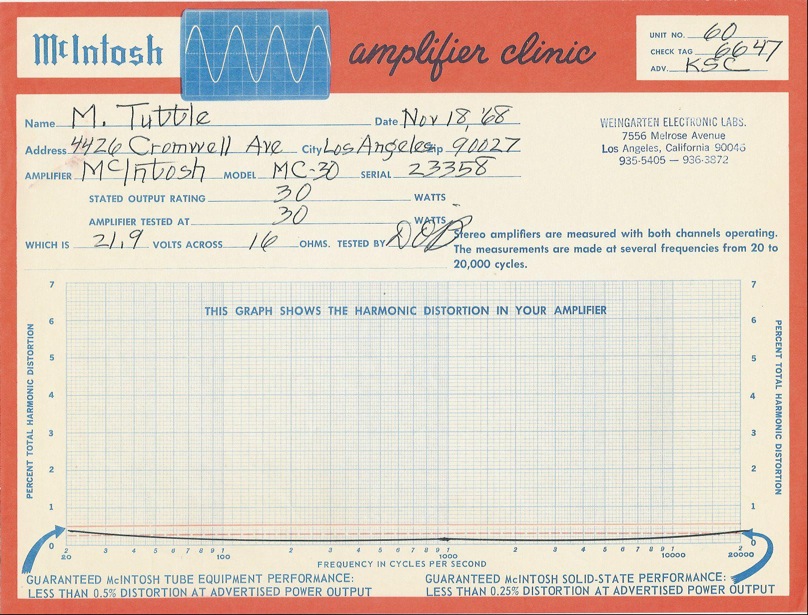 McIntosh amplifier clinic
UNIT NO. 60
CHECK TAG 6647
ADV. KSC
Name M. Tuttle Date Nov 18, '68
Address 4426 Cromwell Ave City Los Angeles Zip 90027
AMPLIFIER McIntosh MODEL MC-30 SERIAL 23358
STATED OUTPUT RATING 30 WATTS
AMPLIFIER TESTED AT 30 WATTS
WHICH IS 21.9 VOLTS ACROSS 16 OHMS. TESTED BY
WEINGARTEN ELECTRONIC LABS.
7556 Melrose Avenue
Los Angeles, California 90046
935-5405 — 936-3872
Stereo amplifiers are measured with both channels operating.
The measurements are made at several frequencies from 20 to
20,000 cycles.
THIS GRAPH SHOWS THE HARMONIC DISTORTION IN YOUR AMPLIFIER
PERCENT TOTAL HARMONIC DISTORTION
7
6
5
4
3
2
1
0
PERCENT TOTAL HARMONIC DISTORTION
7
6
5
4
3
2
1
0
2 3 4 5 6 7 8 9 2 3 4 5 6 7 8 9 2 3 4 5 6 7 8 9 2
20 100 1000 10000 20000
FREQUENCY IN CYCLES PER SECOND
GUARANTEED McINTOSH TUBE EQUIPMENT PERFORMANCE:
LESS THAN 0.5% DISTORTION AT ADVERTISED POWER OUTPUT
GUARANTEED McINTOSH SOLID-STATE PERFORMANCE:
LESS THAN 0.25% DISTORTION AT ADVERTISED POWER OUTPUT